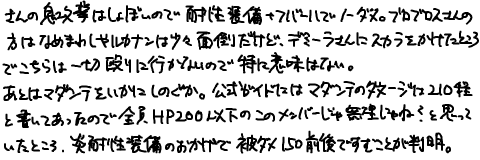 さんの息攻撃はしょぼいので耐性装備+フバーハでノーダメ。プロブロスさんの
方はなめまわしやルカナンは少々面倒だけど、デミーラさんにスカラをかけてたところ
でこちらは一切殴りに行かないので特に意味はない。
あとはマダンテをいかにしのぐか。公式ガイドにはマダンテのダメージは210程
と書いてあったので全員HP200以下のこのメンバーじゃ無理じゃね?と思って
いたところ、炎耐性装備のおかげで被ダメ150前後ですむことが判明。